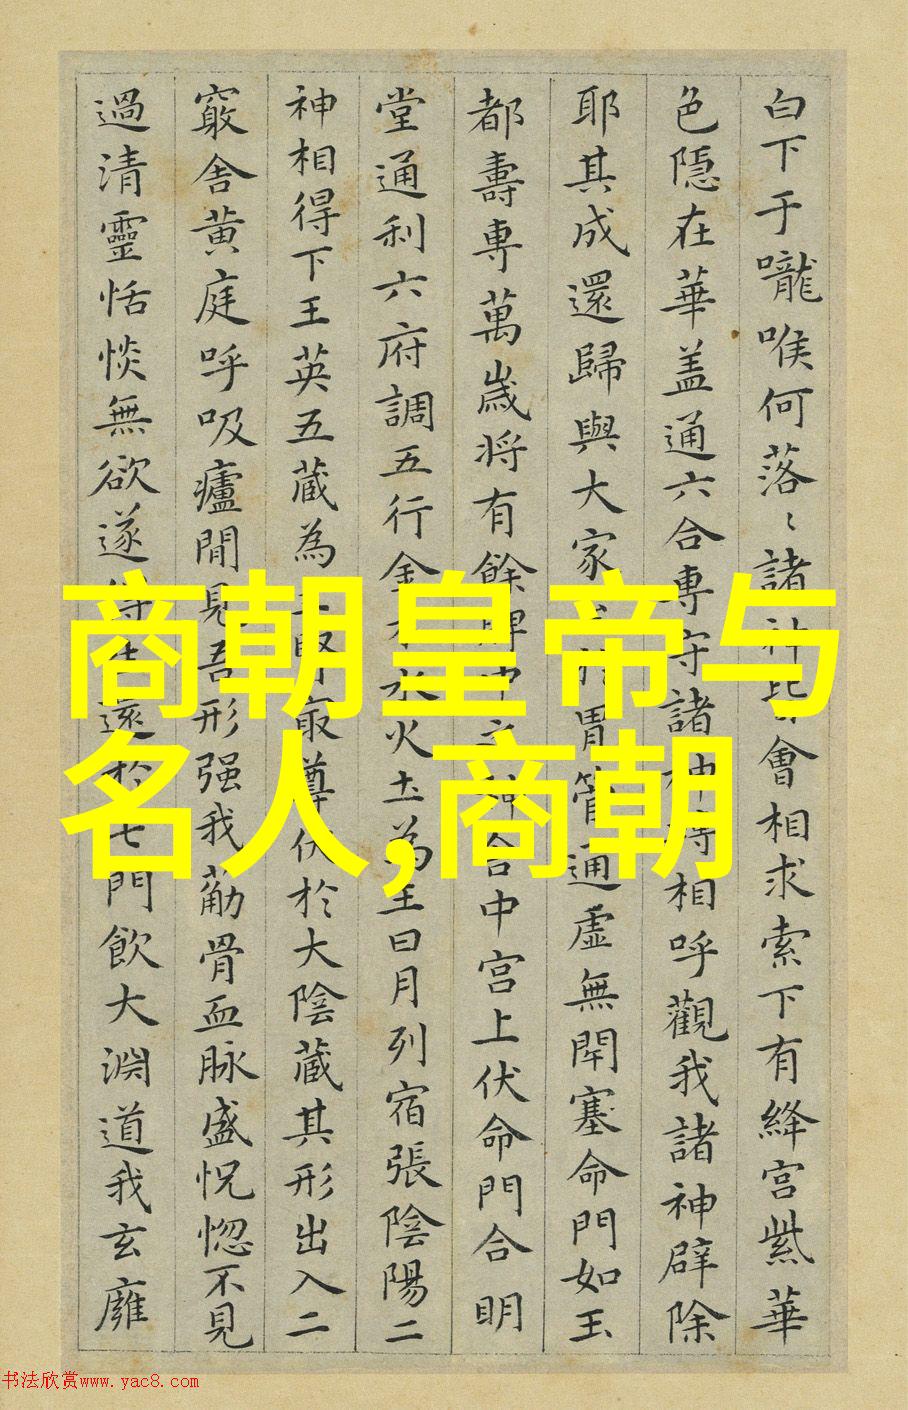 白下于嚨喉何落〻諸神皆會相求索下有絳宮紫華
色隱在華盖通六合專守諸神轉相呼觀我諸神辟除
耶其成還歸與大家 胃管通虛無閇塞命門如玉
都壽專萬歲将有餘脾中之神合中宮上伏命門合明
堂通利六府調五行金木水火土為王日月列宿張陰陽二
神相得下王英五蔵為主腎最尊伏於大陰蔵其形出入二
竅舎黄庭呼吸廬閒見吾形强我萠骨血脉盛怳惚不見
過清靈恬惔無欲遂得生還於七門飲大淵道我玄廱
商朝皇帝与
名人,商朝
书法欣赏www.yac8.com